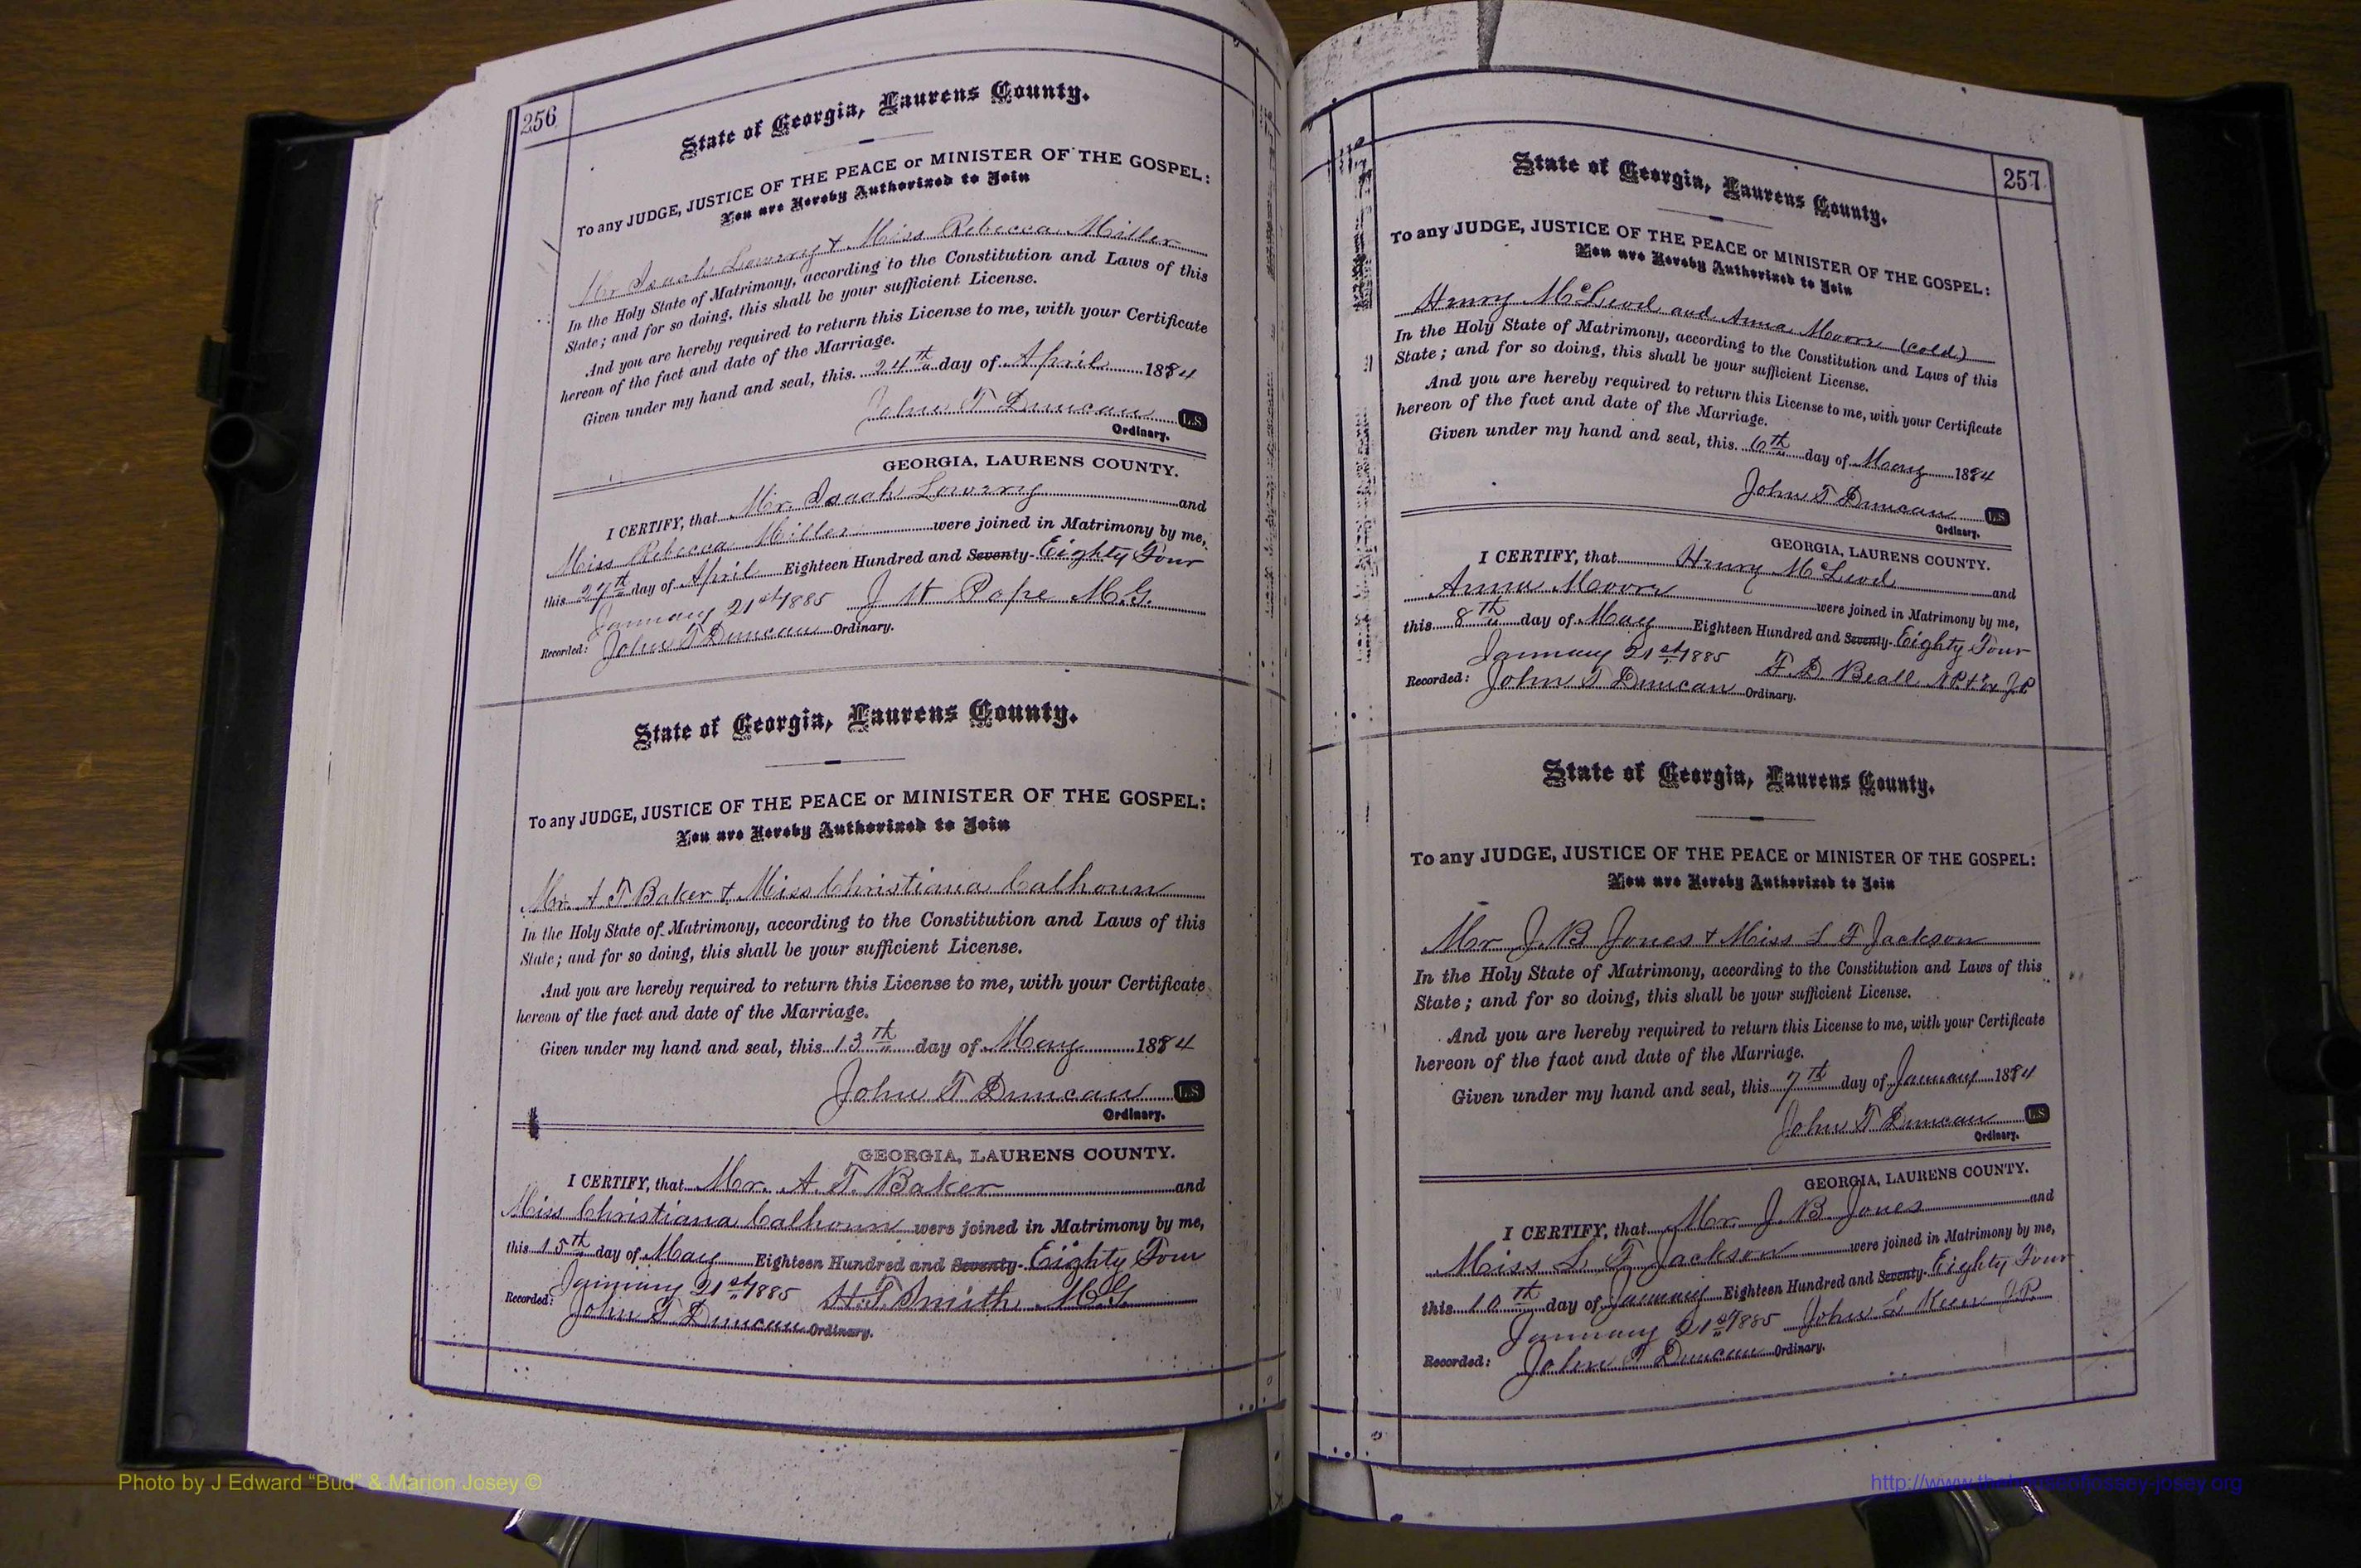 256
State of Georgia, Laurens County.
To any JUDGE, JUSTICE OF THE PEACE or MINISTER OF THE GOSPEL:
You are Hereby Authorized to Join
Mr Isaah Lowery & Miss Rebecca Miller
In the Holy State of Matrimony, according to the Constitution and Laws of this
State; and for so doing, this shall be your sufficient License.
And you are hereby required to return this License to me, with your Certificate
hereon of the fact and date of the Marriage.
Given under my hand and seal, this 24th day of April 1884
John T Duncan L.S.
Ordinary.
GEORGIA, LAURENS COUNTY.
I CERTIFY, that Mr. Isaah Lowery and
Miss Rebecca Miller were joined in Matrimony by me,
this 27th day of April Eighteen Hundred and Seventy- Eighty Four
January 21st 1885 J W Pope M.G.
Recorded: John T Duncan Ordinary.
State of Georgia, Laurens County.
To any JUDGE, JUSTICE OF THE PEACE or MINISTER OF THE GOSPEL:
You are Hereby Authorized to Join
Mr. A T Baker & Miss Christiana Calhoun
In the Holy State of Matrimony, according to the Constitution and Laws of this
State; and for so doing, this shall be your sufficient License.
And you are hereby required to return this License to me, with your Certificate
hereon of the fact and date of the Marriage.
Given under my hand and seal, this 13th day of May 1884
John T Duncan L.S.
Ordinary.
GEORGIA, LAURENS COUNTY.
I CERTIFY, that Mr. A. T. Baker and
Miss Christiana Calhoun were joined in Matrimony by me,
this 15th day of May Eighteen Hundred and Seventy- Eighty Four
January 21st 1885 H.T. Smith M.G.
Recorded: John T Duncan Ordinary.
257
State of Georgia, Laurens County.
To any JUDGE, JUSTICE OF THE PEACE or MINISTER OF THE GOSPEL:
You are Hereby Authorized to Join
Henry McLeod and Anna Moore (cold.)
In the Holy State of Matrimony, according to the Constitution and Laws of this
State; and for so doing, this shall be your sufficient License.
And you are hereby required to return this License to me, with your Certificate
hereon of the fact and date of the Marriage.
Given under my hand and seal, this 6th day of May 1884
John T Duncan L.S.
Ordinary.
GEORGIA, LAURENS COUNTY.
I CERTIFY, that Henry McLeod and
Anna Moore were joined in Matrimony by me,
this 8th day of May Eighteen Hundred and Seventy- Eighty Four
January 21st 1885 F. D. Beall N.P. & Ex J.P.
Recorded: John T Duncan Ordinary.
State of Georgia, Laurens County.
To any JUDGE, JUSTICE OF THE PEACE or MINISTER OF THE GOSPEL:
You are Hereby Authorized to Join
Mr J. B Jones & Miss L F Jackson
In the Holy State of Matrimony, according to the Constitution and Laws of this
State; and for so doing, this shall be your sufficient License.
And you are hereby required to return this License to me, with your Certificate
hereon of the fact and date of the Marriage.
Given under my hand and seal, this 7th day of January 1884
John T Duncan L.S.
Ordinary.
GEORGIA, LAURENS COUNTY.
I CERTIFY, that Mr. J. B. Jones and
Miss L. F. Jackson were joined in Matrimony by me,
this 10th day of January Eighteen Hundred and Seventy- Eighty Four
January 21st 1885 John L Keen J.P.
Recorded: John T Duncan Ordinary.
Photo by J Edward “Bud” & Marion Josey ©
http://www.thehouseofjossey-josey.org